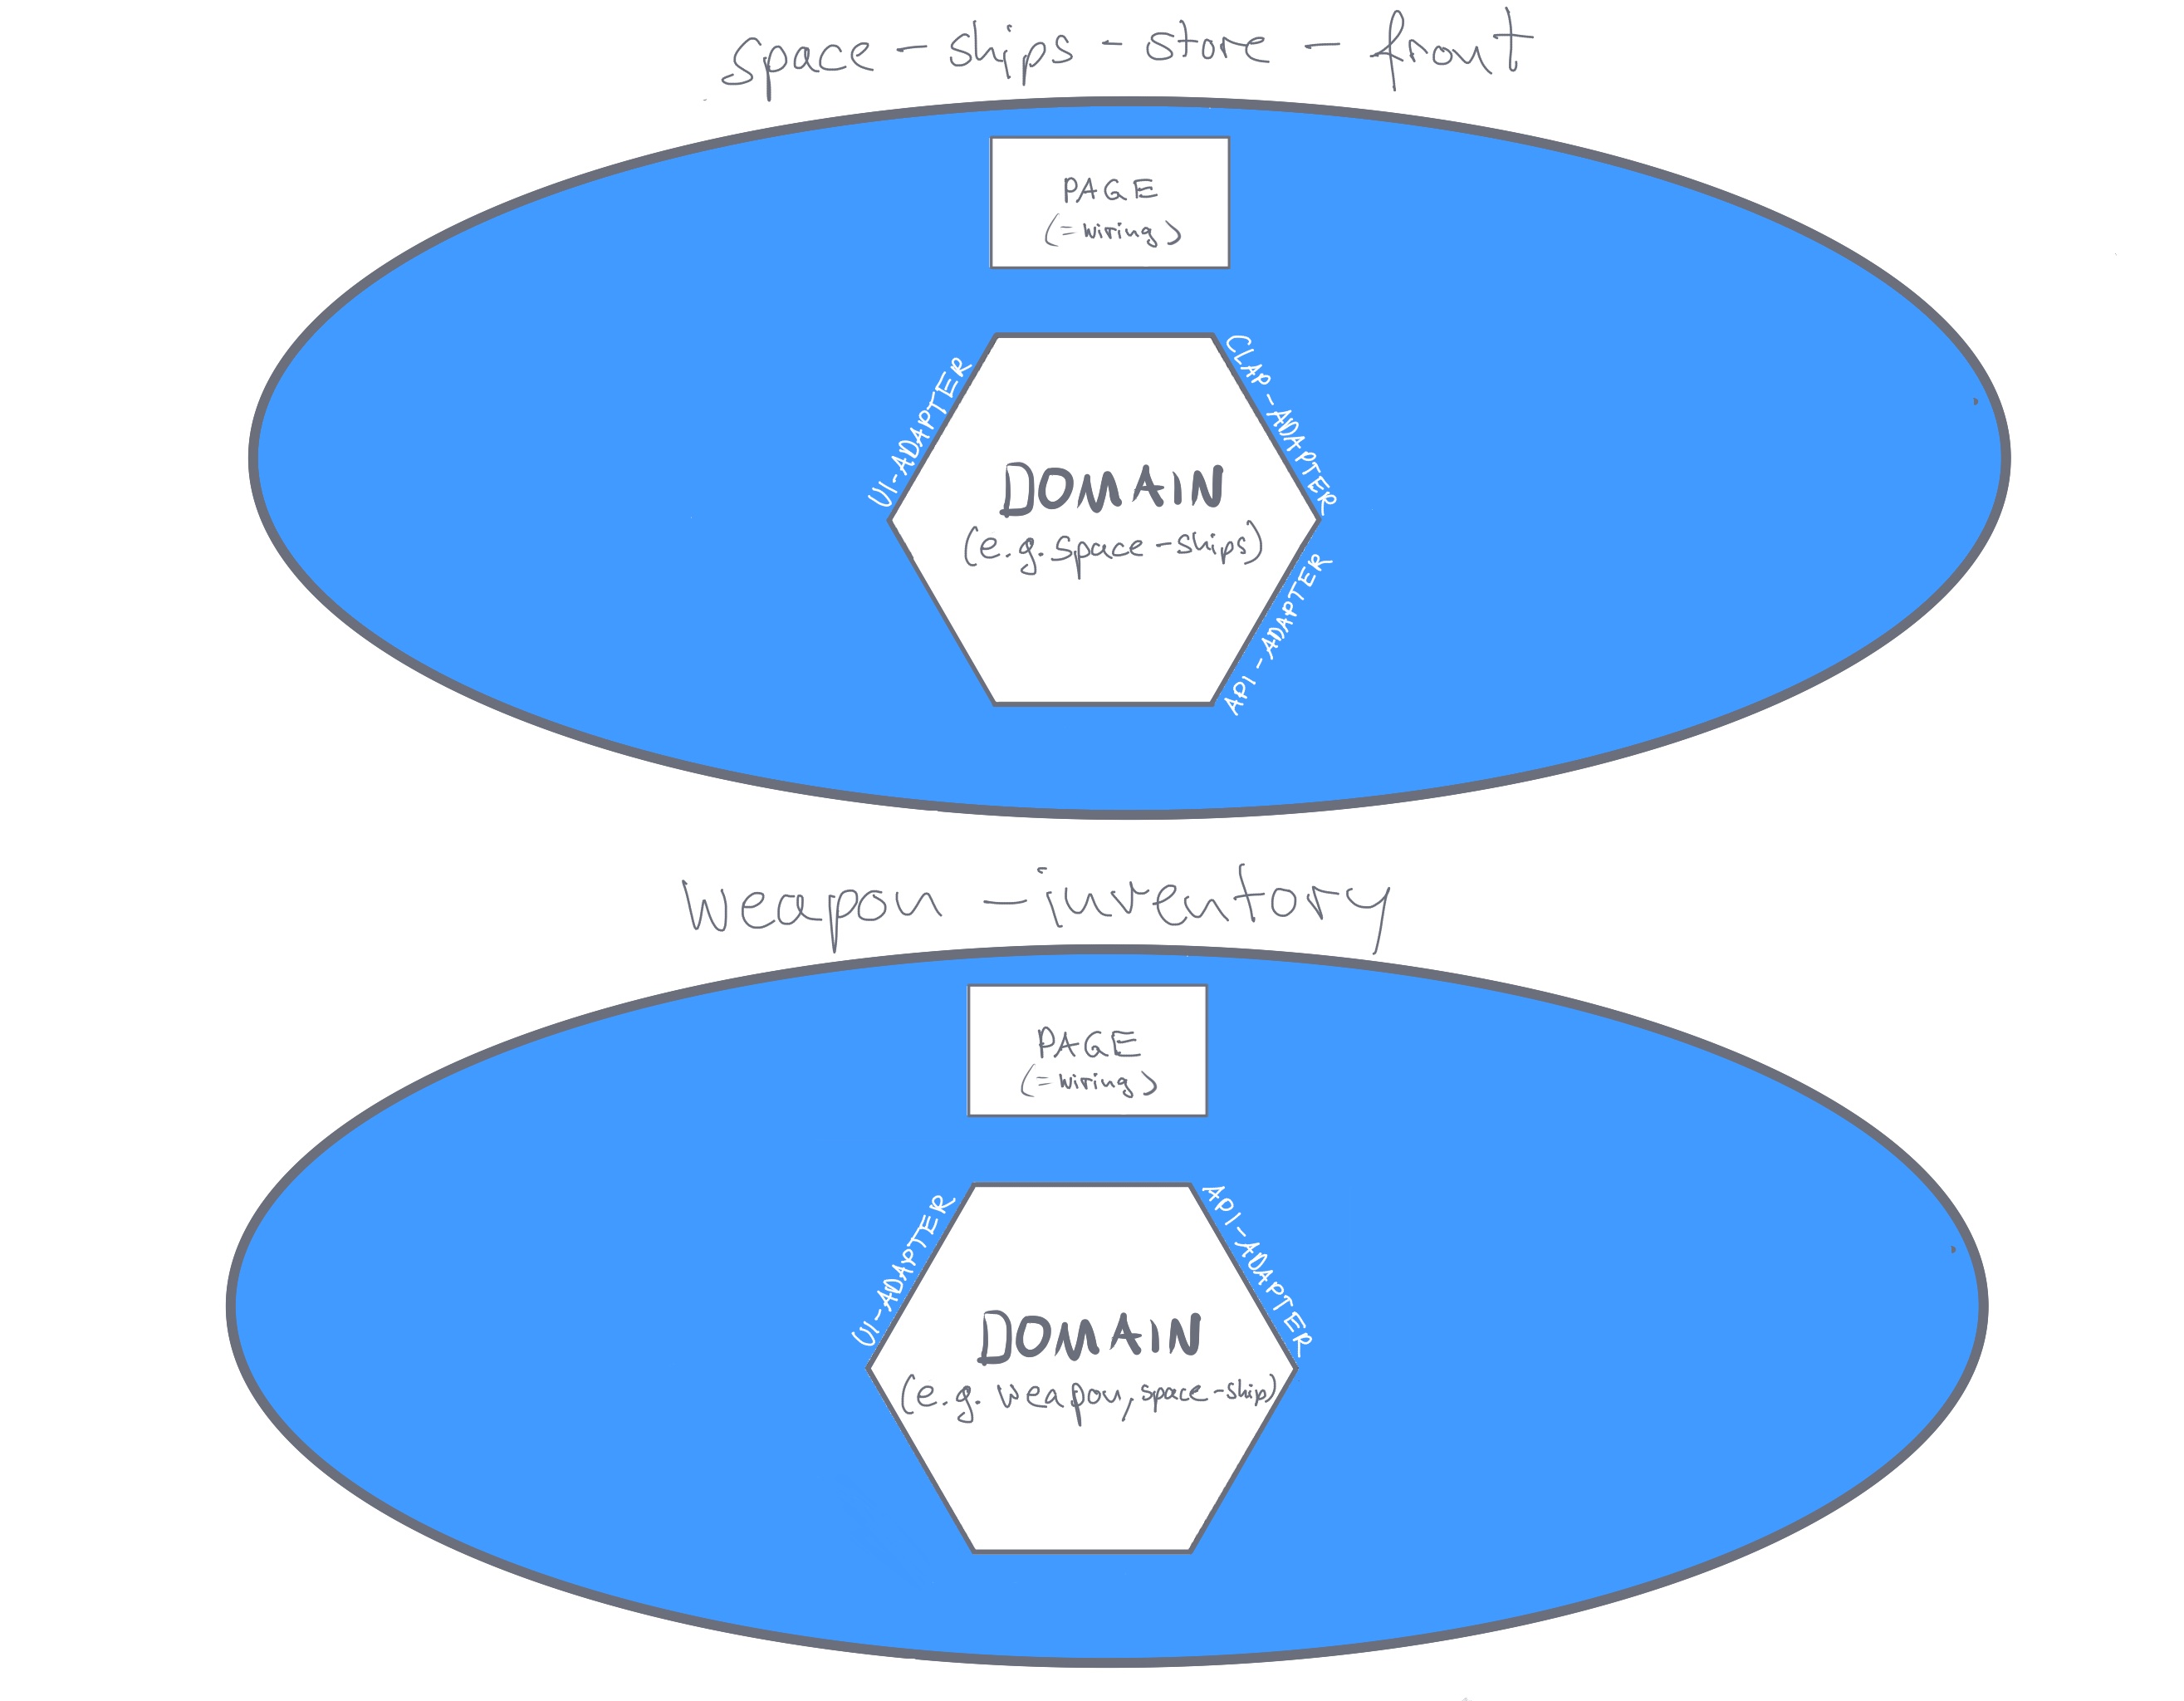 space-ships-store-front
PAGE
(=wiring)
UI-ADAPTER
CLAP-ADAPTER
DOMAIN
(e.g. space-ships)
API-ADAPTER
weapon-inventory
PAGE
(=wiring)
UI-ADAPTER
API-ADAPTER
DOMAIN
(e.g. weapon, space-ship)